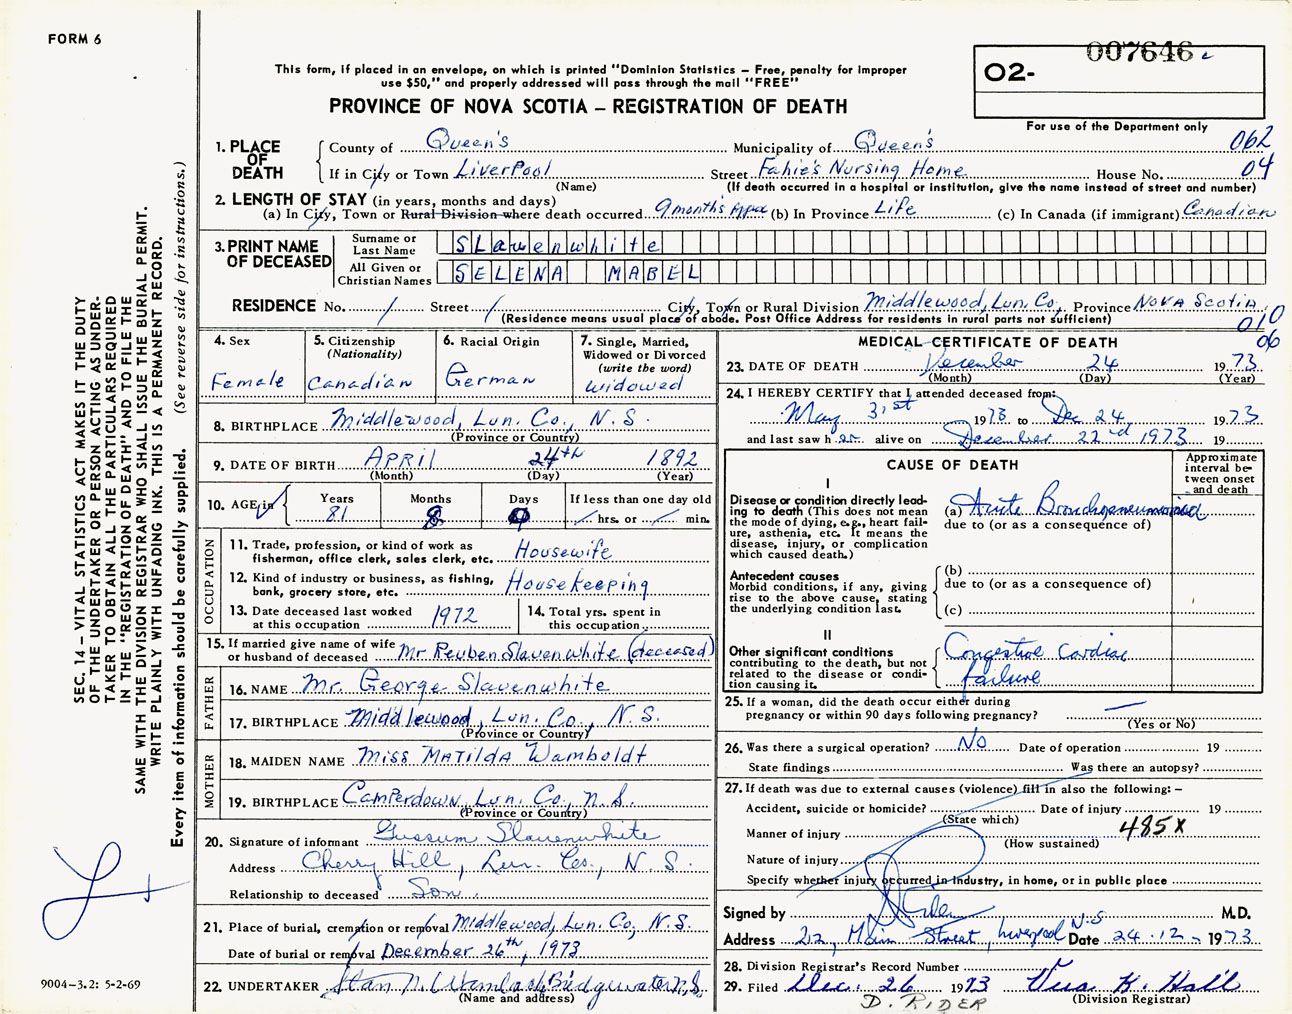 FORM 6
007646
02-
For use of the Department only
062
04
This form, if placed in an envelope, on which is printed "Dominion Statistics – Free, penalty for improper
use $50," and properly addressed will pass through the mail "FREE"
PROVINCE OF NOVA SCOTIA – REGISTRATION OF DEATH
1. PLACE OF DEATH
County of Queen's Municipality of Queen's
If in City or Town Liverpool Street Fahie's Nursing Home House No.
(Name) (If death occurred in a hospital or institution, give the name instead of street and number)
2. LENGTH OF STAY (in years, months and days)
(a) In City, Town or Rural Division where death occurred 9 months Appox (b) In Province Life (c) In Canada (if immigrant) Canadian
3. PRINT NAME OF DECEASED
Surname or Last Name Slawenwhite
All Given or Christian Names SELENA MABEL
RESIDENCE No. / Street / City, Town or Rural Division Middlewood, Lun. Co., Province Nova Scotia
(Residence means usual place of abode. Post Office Address for residents in rural parts not sufficient)
010
06
4. Sex Female
5. Citizenship (Nationality) Canadian
6. Racial Origin German
7. Single, Married, Widowed or Divorced (write the word) widowed
8. BIRTHPLACE Middlewood, Lun. Co., N.S.
(Province or Country)
9. DATE OF BIRTH April 24th 1892
(Month) (Day) (Year)
10. AGE in Years 81 Months 8 Days 0 If less than one day old hrs. or min.
OCCUPATION
11. Trade, profession, or kind of work as
fisherman, office clerk, sales clerk, etc. Housewife
12. Kind of industry or business, as fishing,
bank, grocery store, etc. Housekeeping
13. Date deceased last worked
at this occupation 1972
14. Total yrs. spent in
this occupation
15. If married give name of wife
or husband of deceased Mr Reuben Slavenwhite (deceased)
FATHER
16. NAME Mr. George Slavenwhite
17. BIRTHPLACE Middlewood, Lun. Co., N.S.
(Province or Country)
MOTHER
18. MAIDEN NAME Miss Matilda Wamboldt
19. BIRTHPLACE Camperdown, Lun. Co., N.S.
(Province or Country)
20. Signature of informant Slauenwhite
Address Cherry Hill, Lun. Co., N.S.
Relationship to deceased Son
21. Place of burial, cremation or removal Middlewood, Lun. Co., N.S.
Date of burial or removal December 26th, 1973
22. UNDERTAKER Bridgewater, N.S.
(Name and address)
MEDICAL CERTIFICATE OF DEATH
23. DATE OF DEATH December 24 1973
(Month) (Day) (Year)
24. I HEREBY CERTIFY that I attended deceased from:
May 31st 1973 to Dec 24 1973
and last saw her alive on December 22nd 1973 19
CAUSE OF DEATH
Approximate interval between onset and death
I
Disease or condition directly leading to death (This does not mean the mode of dying, e.g., heart failure, asthenia, etc. It means the disease, injury, or complication which caused death.)
(a) Acute Bronchopneumonia
due to (or as a consequence of)
Antecedent causes
Morbid conditions, if any, giving rise to the above cause, stating the underlying condition last.
(b)
due to (or as a consequence of)
(c)
II
Other significant conditions
contributing to the death, but not related to the disease or condition causing it.
Congestive Cardiac
failure
25. If a woman, did the death occur either during
pregnancy or within 90 days following pregnancy? —
(Yes or No)
26. Was there a surgical operation? No Date of operation 19
State findings Was there an autopsy?
27. If death was due to external causes (violence) fill in also the following: –
Accident, suicide or homicide? Date of injury 19
(State which)
Manner of injury 485X
(How sustained)
Nature of injury
Specify whether injury occurred in industry, in home, or in public place
Signed by M.D.
Address 22, Main Street, Liverpool N.S Date 24.12. 1973
28. Division Registrar's Record Number
29. Filed Dec. 26 1973 Vera K. Hall
(Division Registrar)
D. RIDER
SEC. 14 – VITAL STATISTICS ACT MAKES IT THE DUTY
OF THE UNDERTAKER OR PERSON ACTING AS UNDER-
TAKER TO OBTAIN ALL THE PARTICULARS REQUIRED
IN THE "REGISTRATION OF DEATH" AND TO FILE THE
SAME WITH THE DIVISION REGISTRAR WHO SHALL ISSUE THE BURIAL PERMIT.
WRITE PLAINLY WITH UNFADING INK. THIS IS A PERMANENT RECORD.
Every item of information should be carefully supplied. (See reverse side for instructions.)
9004-3.2: 5-2-69